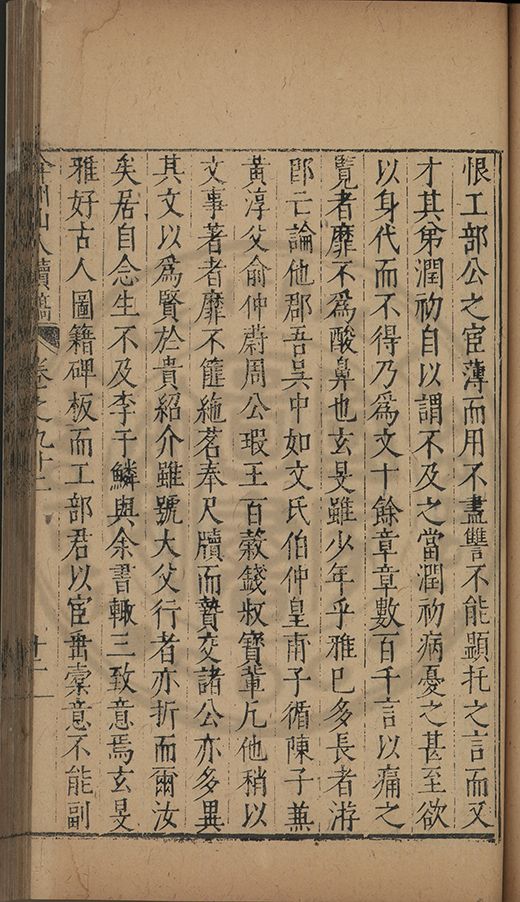 恨工部公之宦薄而用不盡讐不能顯托之言而又
才其弟潤初自以謂不及之當潤初病憂之甚至欲
以身代而不得乃爲文十餘章章數百千言以痛之
覧者靡不爲酸鼻也玄旻雖少年乎雅已多長者游
卽亡論他郡吾吳中如文氏伯仲皇甫子循陳子兼
黃淳父俞仲蔚周公瑕王百榖錢叔寶輩凡他稍以
文事著者靡不篚絁茗奉尺牘而贄交諸公亦多異
其文以爲賢於貴紹介雖號大父行者亦折而爾汝
矣居自念生不及李于鱗與余書輙三致意焉玄旻
雅好古人圖籍碑板而工部君以宦橐意不能副
弇州山人續稿 卷之九十二 十二